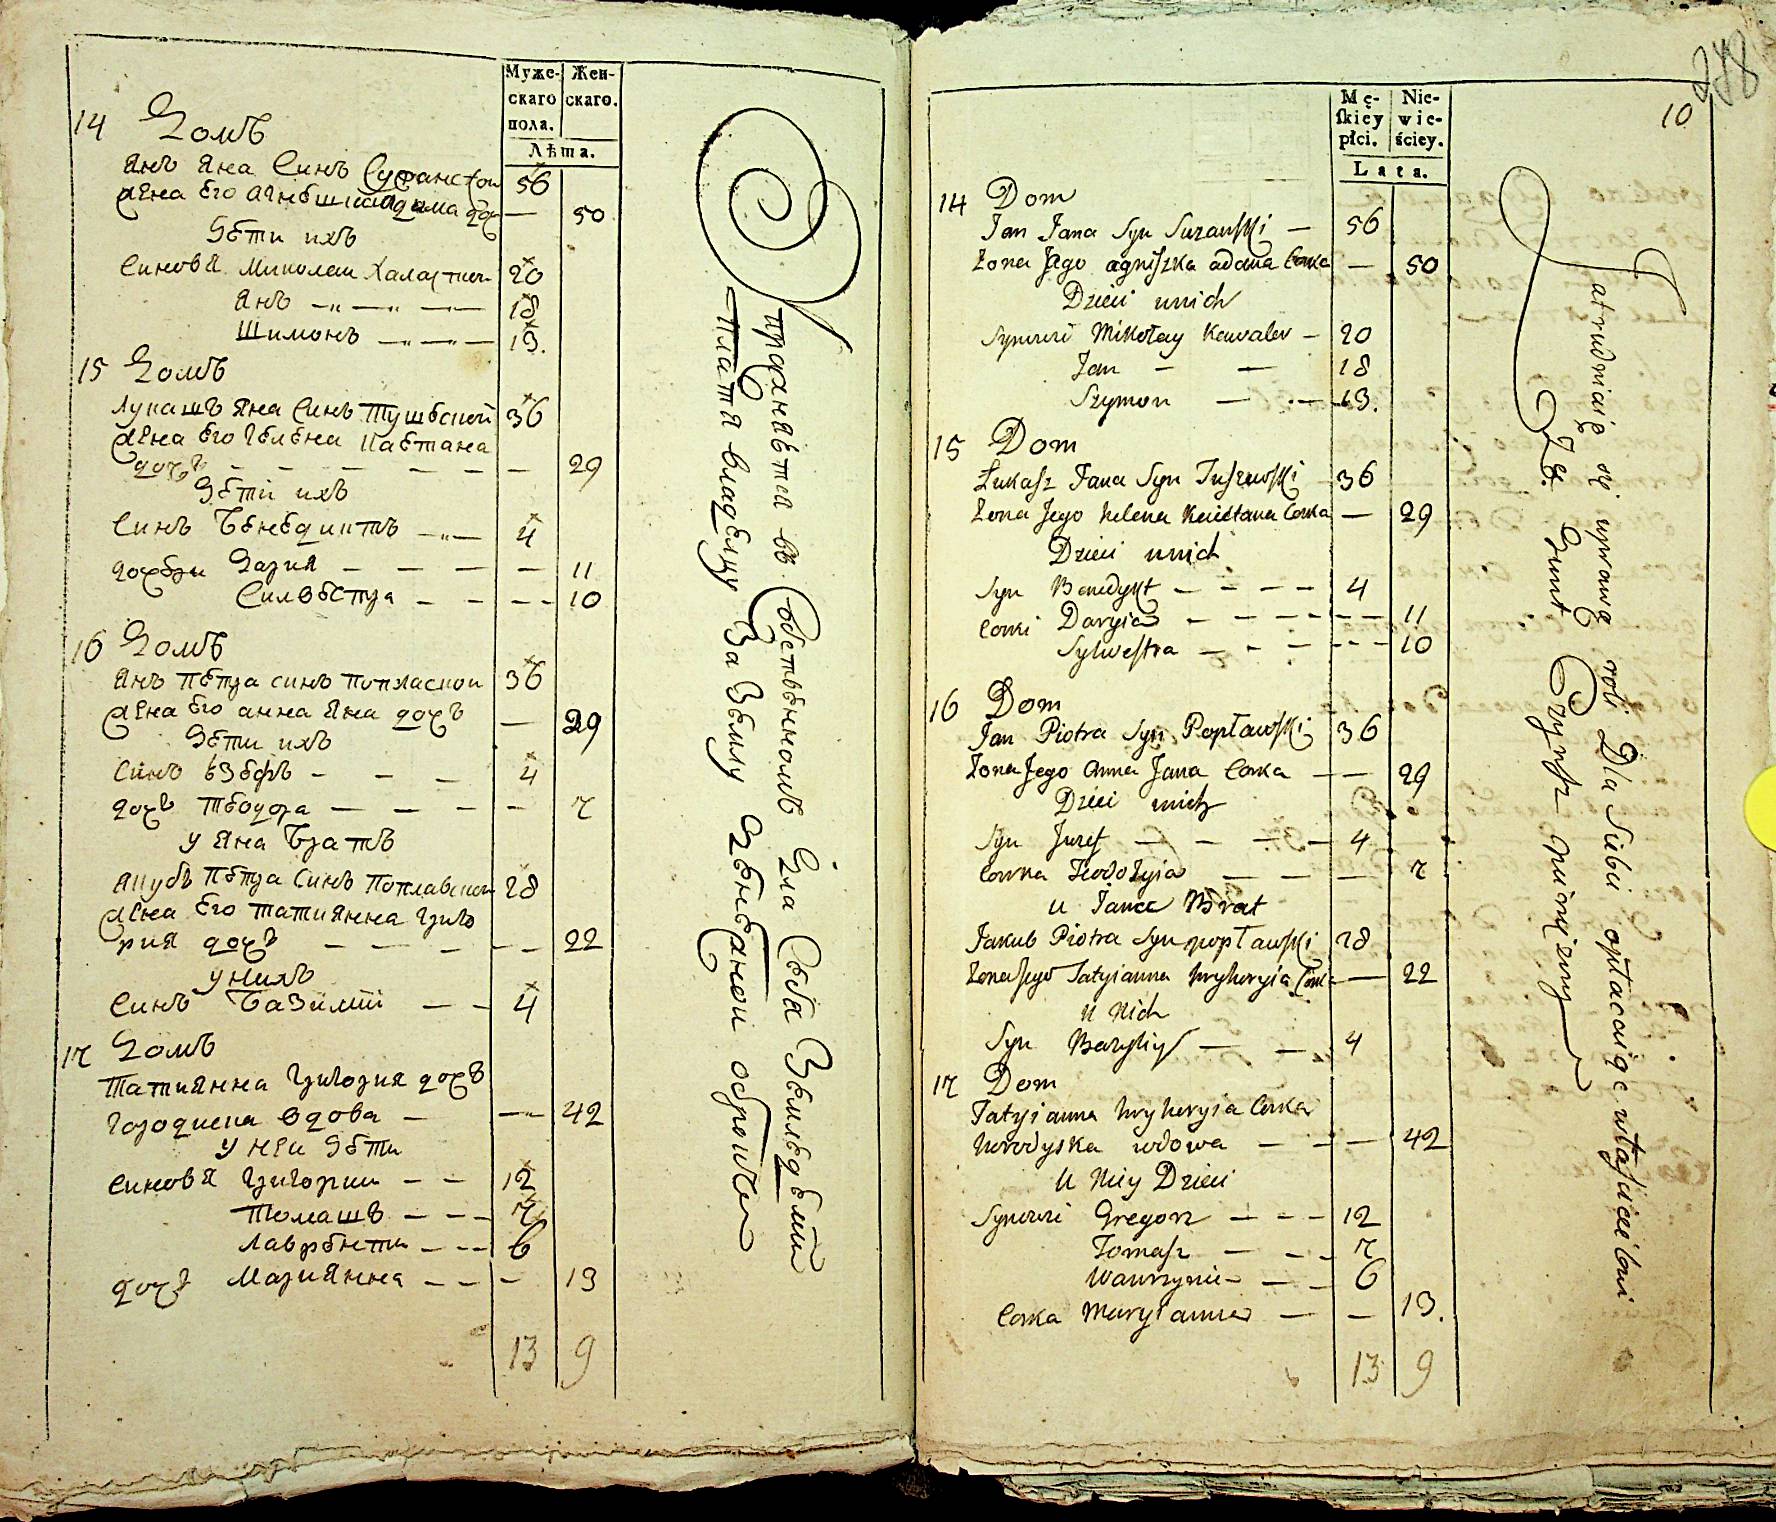 Муже-
скаго
пола.
Жен-
скаго.
Лѣта.
14 Домъ
Янъ Яна Синъ 56
Жена Его 50
Дѣти ихъ
Синовя Миколаи 20
Янъ 18
Шимонъ 13.
15 Домъ
Лукашъ Яна Синъ Тушевской 36
Жена Его Гелена Каетана
дочъ 29
Дѣти ихъ
Синъ Бенедиктъ 4
дочери Дария 11
Силвестра 10
16 Домъ
Янъ Петра синъ Поплаской 36
Жена Его анна Яна дочъ 29
Дѣти ихъ
Синъ Юзефъ 4
дочъ Теодора 7
у Яна Братъ
Якубъ Петра Синъ Поплавской 28
Жена Его Татиянна Григо
рия дочъ 22
у нихъ
Синъ Базилий 4
17 Домъ
Татиянна Григория дочъ
вдова 42
у неи Дѣти
Синовя Григории 12
Томашъ 7
Лавренти 6
дочъ Мариянна 13
13 9
в Собственномъ Для Себя
Платя владелцу За Землу
278
10
Mę-
ſkiey
płci.
Nie-
wie-
ściey.
Lata.
14 Dom
Jan Jana Syn Suzanſki — 56
Zona Jego agniſzka adama Corka — 50
Dzieci unich
Synowie Mikołay Kawaler — 20
Jan — — 18
Szymon — — 13.
15 Dom
Łukaſz Jana Syn Tuſzewſki 36
Zona Jego helena Kaietana Corka — 29
Dzieci unich
Syn Benedykt — — — — 4
Corki Daryia — — — — — 11
Sylweſtra — — — — 10
16 Dom
Jan Piotra Syn Popławſki 36
Zona Jego Anna Jana Corka — — 29
Dzieci unich
Syn Juzef — — — — 4
Corka Teodozyia — — — 7
u Jana Brat
Jakub Piotra Syn popławſki 28
Zona Jego Tatyianna hryhoryia Cork — 22
U Nich
Syn Bazyliy — — 4
17 Dom
Tatyianna hryhoryia Corka
horodyska wdowa — — — 42
U Niey Dzieci
Synowie Gregorz — — — 12
Tomaſz — — — 7
Wawrzynie — — — 6
Corka Maryianna — — 13.
13 9
Zatrudniaią się uprawą roli Dla Siebie opłacaiąc właſcicielowi
Za Grunt Czynſz